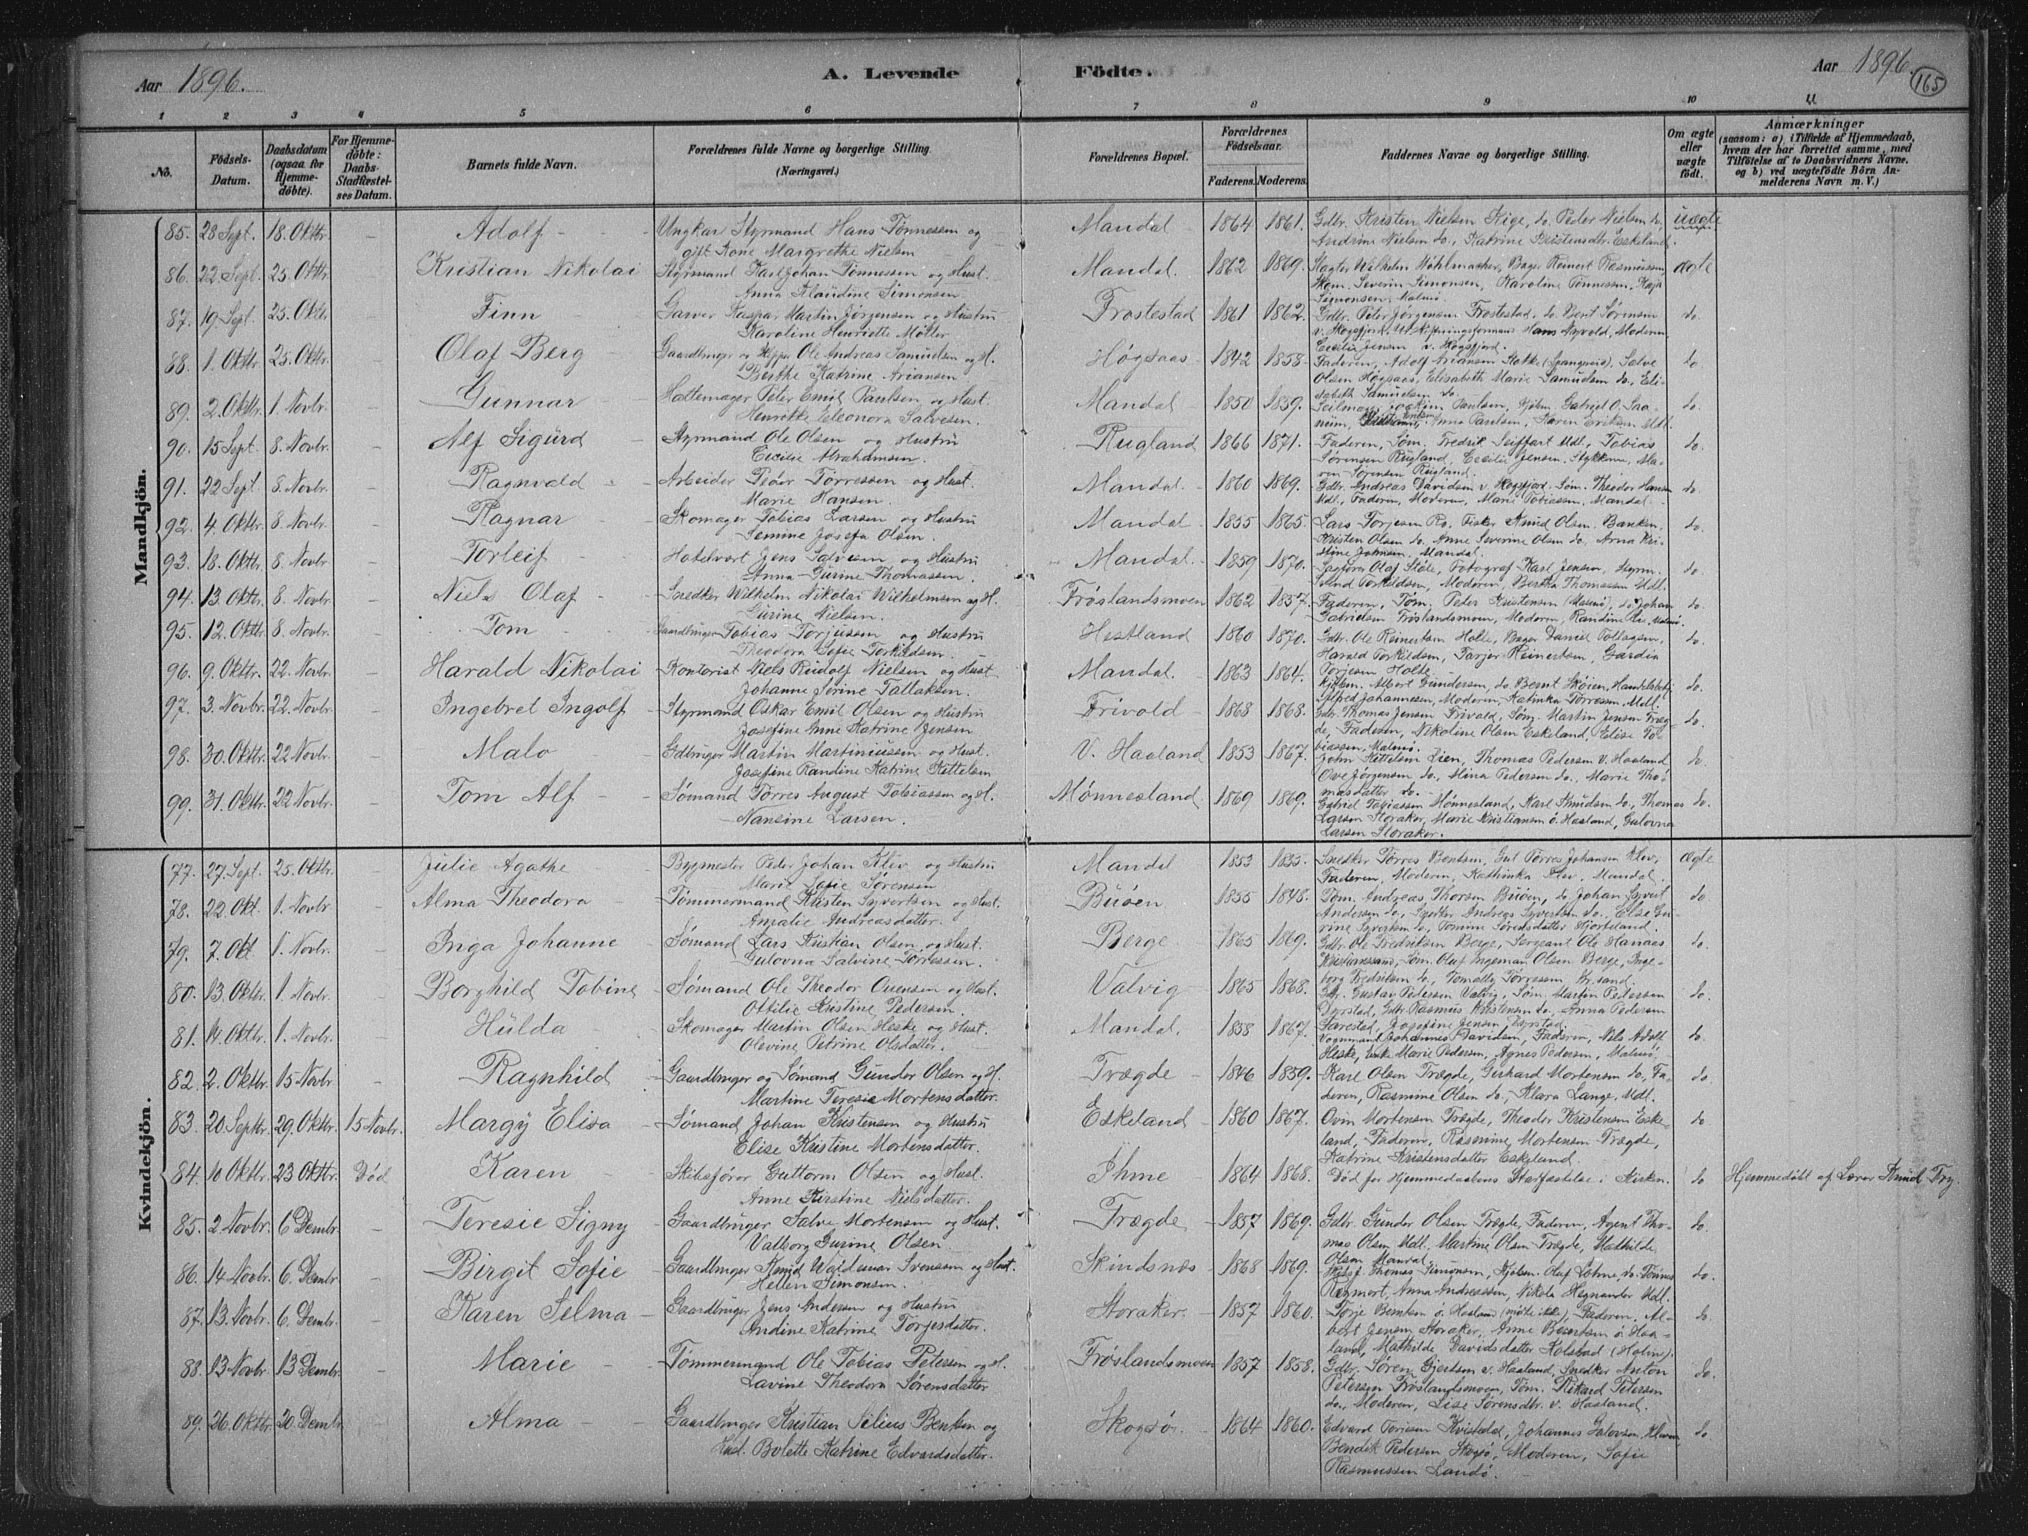 Aar 1896. A. Levende Födte. Aar 1896. 165
1 2 3 4 5 6 7 8 9 10 11
No. Födsels-Datum. Daabsdatum (ogsaa for Hjemmedöbte). For Hjemmedöbte: Daabs-Stadfæstelses Datum. Barnets fulde Navn. Forældrenes fulde Navne og borgerlige Stilling. (Næringsvei.) Forældrenes Bopæl. Forældrenes Födselsaar. Faderens. Moderens. Faddernes Navne og borgerlige Stilling. Om ægte eller uægte födt. Anmærkninger (saasom: a) i Tilfælde af Hjemmedaab, hvem der har forrettet samme, med Tilföielse af to Daabsvidners Navne. og b) ved uægtefödte Börn Anmelderens Navn m. V.)
Mandkjön.
85. 28 Sept. 18. Oktbr. - Adolf - Ungkar Styrmand Hans Tönnessen og Mandal - 1864 1861. Gdbr. Kristen Nielsen Kige, do. Peder Nielsen do. uægte
gift Kone Margrethe Nielsen Andrine Nielsen do., Katrine Kristensdtr. Eskeland.
86. 22 Sept. 25. Oktbr. - Kristian Nikolai Styrmand Karl Johan Tönnessen og Hust. Mandal. 1862 1869. Slagter Wilhelm Möhlmacher, Bager Reinert Rasmussen, ægte
Anna Klaudine Simonsen. Skom. Severin Simonsen, Karoline Tönnessen,
Simonsen, Malmö.
87. 19 Sept. 25. Oktbr. - Finn - Garver Kaspar Martin Jörgensen og Hustru Frostestad 1861 1862. Gdbr. Peter Jörgensen Frostestad, do. Bernt Sörensen do.
Karoline Henriette Möller v. Skogsfjord, Udskibningsformand Hans Nyvold, Moderen,
Cecilie Jensen v. Skogsfjord.
88. 1. Oktbr. 25. Oktbr. - Olaf Berg - Gaardbruger og Skipper Ole Andreas Samuelsen og H. Högsaas 1842 1858. Faderen, Adolf Ariansen Stokke (Spangereid), Salve do
Berthe Katrine Ariansen Olsen Högsaas, Elisabeth Marie Samuelsen do., Eli-
sabeth Samuelsen do.
89. 2. Oktbr. 1. Novbr. - Gunnar - Hattemager Peter Emil Paulsen og Hust. Mandal 1850 1859. Seilmager Joakim Paulsen, Kjöbm. Gabriel O. Saa- do.
Henrikke Eleonora Salvesen. Anna Paulsen, Karen Eriksen Mdl.
90. 15 Sept. 8. Novbr. - Alf Sigurd - Styrmand Ole Olsen og Hustru Rugland 1866 1871. Faderen, Söm. Fredrik Seiffart Mdl., Tobias do.
Cecilie Abrahamsen. Sörensen Rugland, Cecilie Jensen, Stykkene, Ma-
ren Sörensen Rugland.
91. 22 Sept. 8. Novbr. - Ragnvald - Arbeider Peder Torressen og Hust. Mandal - 1860 1869. Gdbr. Andreas Davidsen v. Skogsfjord, Söm. Theodor Hansen do.
Marie Hansen. Mdl., Faderen, Moderen, Marie Tobiassen, Mandal.
92. 4. Oktbr. 8. Novbr. - Ragnar - Skomager Tobias Larsen og Hustru Mandal - 1855 1865. Lars Torjesen Ro, Fisker Knud Olsen, Banken, do.
Semine Josefa Olsen. Kristen Olsen do. Anne Severine Olsen do. Anna Kri-
stine Johnsen, Mandal.
93. 18. Oktbr. 8. Novbr. - Torleif - Hotelvert Jens Salvesen og Hustru Mandal. 1859 1870. Sagförer Olaf Stöle, Fotograf Karl Jensen, Styrm. do.
Anna Gurine Thomassen. Torkildsen, Moderen, Bertha Thomassen Mdl.
94. 13. Oktbr. 8. Novbr. - Niels Olaf - Snedker Wilhelm Nikolai Wilhelmsen og H. Fröslandsmoen 1862 1857. Faderen, Töm. Peder Kristensen (Malmö), do. Johan do.
Gurine Nielsen. Gabrielsen Fröslandsmoen, Moderen, Randine Ro, Malmö.
95. 12. Oktbr. 8. Novbr. - Tom - Gaardbruger Tobias Torjussen og Hustru Hestland 1860 1870. Gdbr. Ole Reinertsen Holte, Bager Daniel Tollagsen, do.
Theodora Sofie Torkildsen. Harald Torkildsen, Tarjer Reinertsen, Gardin
Torjesen Holte
96. 9. Oktbr. 22. Novbr. - Harald Nikolai Kontorist Niels Rudolf Nielsen og Hust. Mandal. 1863 1864. Kjöbm. Albert Gundersen, do. Bernt Skoien, Handelsbetj. do.
Johanne Jörine Tallaksen. Alfred Johannesen, Moderen, Katinka Torresen, Mdl.
97. 3. Novbr. 22. Novbr. - Ingebret Ingolf - Styrmand Oskar Emil Olsen og Hustru Frivold - 1868 1868. Gdbr. Thomas Jensen Frivold, Söm. Martin Jensen Træg- do.
Josefine Anne Katrine Jensen de, Faderen, Nikoline Olsen Eskeland, Elise To-
biassen, Malmö.
98. 30. Oktbr. 22 Novbr. - Malo - Gdbruger Martin Martiniussen og Hust. V. Haaland 1853 1867. John Kittelsen Lien, Thomas Pedersen V. Haaland do.
Josefine Randine Katrine Kittelsen Ove Jörgensen do., Mina Pedersen do., Marie Tho-
masdatter do.
99. 31. Oktbr. 22 Novbr. - Tom Alf - Sömand Torres August Tobiassen og H. Mönnesland 1869 1869. Gabriel Tobiassen Mönnesland, Karl Knudsen do., Thomas do.
Nansine Larsen. Larsen Storaker, Marie Kristiansen ö. Haaland, Gulovna
Larsen Storaker.
Kvindekjön.
77. 27. Sept. 25. Oktbr. - Julie Agathe Bygmester Peder Johan Klev og Hustru Mandal 1853 1855. Snedker Törres Bentsen, Gul. Torres Johansen Klev, ægte
Marie Sofie Sörensen Faderen, Moderen, Kathinka Klev, Mandal.
78. 22. Okt. 1. Novbr. - Alma Theodora - Tömmermand Kristen Syvertsen og Hust. Buöen 1855 1848. Töm. Andreas Thorsen Buöen, do. Johan Syvert do
Amalie Andreasdatter. Andersen do., Snedker Andreas Syvertsen do., Else Gu-
rine Syvertsen do., Tomine Sörensdatter Hjorteland.
79. 7. Okt. 1. Novbr. - Inga Johanne - Sömand Lars Kristian Olsen og Hust. Berge - 1865 1869. Gdbr. Ole Fredriksen Berge, Sergeant Ole Hanaas do.
Gulovna Salvine Torressen. Kristianssand, Töm. Oluf Ingeman Olsen Berge, Inge-
borg Fredriksen do., Tomalie Törressen Kr.sand.
80. 13. Oktbr. 1. Novbr. - Borghild Tobine - Sömand Ole Theodor Ovensen og Hust. Valvig - 1865 1868. Gdbr. Gustav Petersen Valvig, Söm. Martin Petersen do.
Ottilie Kristine Pedersen. Dyrstad, Gdbr. Rasmus Kristensen do., Anna Pedersen
Farestad, Josefine Jensen Dyrstad.
81. 14. Oktbr. 1. Novbr. - Hulda - Skomager Martin Olsen Heske og Hust. Mandal. 1858 1867. Vognmand Johannes Davidsen, Faderen, Nils Adolf do.
Olevine Petrine Olsdatter. Heske, Marie Pedersen, Agnes Pedersen, Malmö.
82. 2. Oktbr. 15 Novbr. - Ragnhild - Gaardbruger og Sömand Gunder Olsen og H. Trægde - 1846 1859. Karl Olsen Trægde, Gerhard Mortensen do., Fa- do
Martine Teresie Mortensdatter. deren, Rasmine Olsen do., Klara Lange, Mdl.
83. 20 Septbr. 29. Oktbr. 15 Novbr. Margy Elisa - Sömand Johan Kristensen og Hustru Eskeland 1860 1867. Ovin Mortensen Trægde, Theodor Kristensen Eske- do
Elise Kristine Mortensdatter. land, Faderen, Rasmine Mortensen Trægde,
Katrine Kristensdatter Eskeland.
84. 10 Oktbr. 23 Oktbr. Död Karen - Skibsförer Guttorm Olsen og Hust. Ihme - 1864 1868. Död för Hjemmedaabens Stadfæstelse i Kirken. do Hjemmedöbt af Lærer Knud Try
Anne Kirstine Nielsdatter.
85. 2. Novbr. 6 Dembr. - Teresie Signy - Gaardbruger Salve Mortensen og Hust. Trægde 1857 1869. Gdbr. Gunder Olsen Trægde, Faderen, Agent Tho- do.
Valborg Gurine Olsen. mas Olsen Mdl., Martine Olsen Trægde, Mathilde
Olsen Mandal.
86. 14 Novbr. 6. Dembr. - Birgit Sofie - Gaardbruger Knud Waldemar Svensen og Hust. Skindsnæs 1868 1869. Thomas Simonsen, Kjöbm. Olaf Lohne, do. Tönnes do.
Hellen Simonsen. Anna Andreassen, Nikola Hegnander Mdl.
87. 13. Novbr. 6. Dembr. - Karen Selma - Gaardbruger Jens Andersen og Hustru Storaker. 1857 1860. Torje Bentsen ö. Haaland (mötte ikke), Faderen, Al- do.
Andine Katrine Torjesdatter. bert Jensen Storaker, Anne Bentsen ö. Haa-
land, Mathilde Davidsdatter Kolstad (Holme).
88. 13 Novbr. 13 Dembr. - Marie - Tömmermand Ole Tobias Petersen og H. Fröslandsmoen 1857 1858. Gdbr. Sören Gjertsen v. Haaland, Snedker Anton do.
Lavine Theodora Sörensdatter Petersen Fröslandsmoen, Töm. Rikard Petersen
do., Moderen, Lise Sörensdtr. v. Haaland.
89. 26. Oktbr. 20. Dembr. - Alma - Gaardbruger Kristian Silius Bentsen og Skogsö. 1864 1860. Edvard Torjesen Kvisedal, Johannes Salvesen Kleven do.
Hust. Bolette Katrine Edvardsdatter. Bendik Pedersen Skogsö, Moderen, Sofie
Rasmussen Landö.